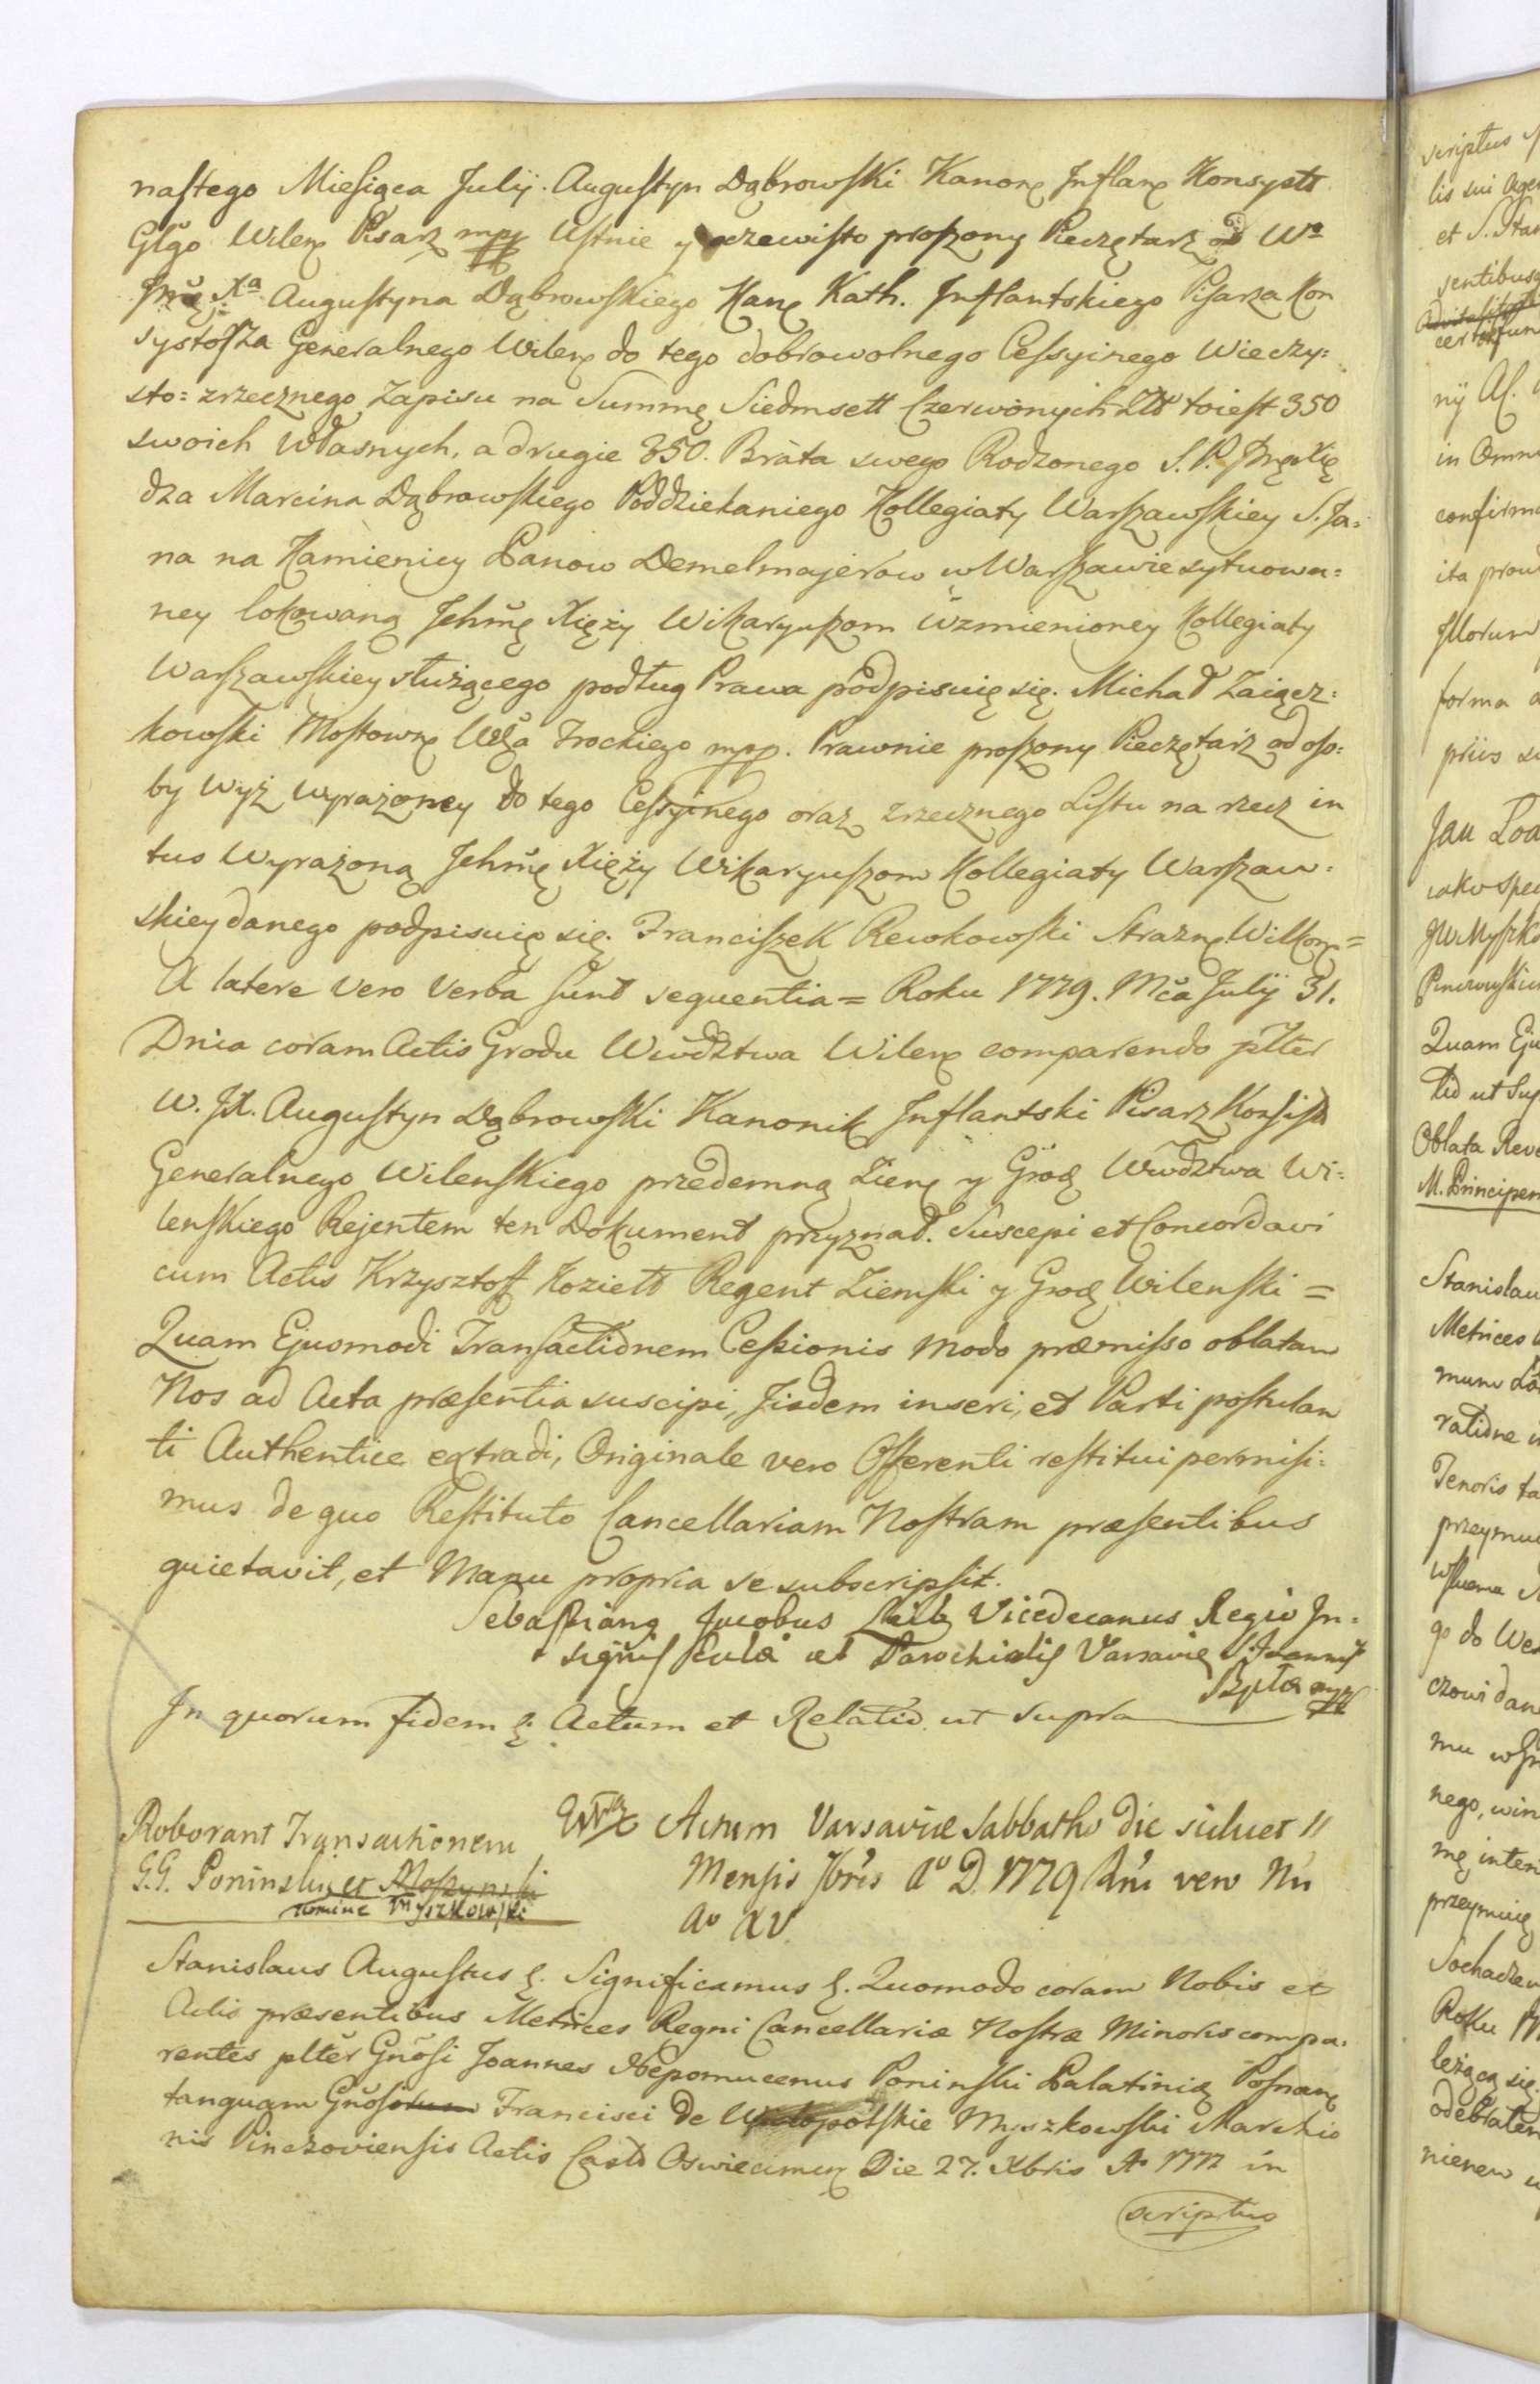 nastego Miesiąca Julij. Augustyn Dąbrowski Kanonę Inflanę Konsyst
Glgo Wilenę Pisarz mpp Ustnie y oczewisto proszony Pieczętarz od Wo
Jmę Xa Augustyna Dąbrowskiego Kanę Kath. Inflantskiego Pisarza Kon
systorza Generalnego Wilenę do tego dobrowolnego Cessyinego Wieczy:
sto=zrzecznego Zapisu na Summę Siedmsett Czerwonych Złł toiest 350
swoich Własnych, a drugie 350. Brata swego Rodzonego S.P. Jmę Xię
dza Marcina Dąbrowskiego Poddziekaniego Kollegiaty Warszawskiey S. Ja:
na na Kamienicy Panow Demelmajerow w Warszawie sytuowa:
ney lokowaną Jchmę Xięży Wikaryuszom wzmienioney Kollegiaty
Warszawskiey służącego podług Prawa podpisuię się. Michał Zaiącz:
kowski Mostownę Wdźa Trockiego mpp. Prawnie proszony Pieczętarz od oso:
by wyż wyrażoney do tego Cessyinego oraz zrzecznego Listu na rzecz in
tus Wyrażoną Jchmę Xięży Wikaryuszom Kollegiaty Warszaw:
skiey danego podpisuię się. Franciszek Rewkowski Strażnę Wilkomę=
A latere vero Verba sunt sequentia= Roku 1779. Mca Julij 31.
Dnia coram Actis Grodu Wwdztwa Wilenę comparendo plter
W. JX. Augustyn Dąbrowski Kanonik Inflantski Pisarz Konsist
Generalnego Wilenskiego przedemną Zienę y Grodę Wwdztwa Wi:
lenskiego Rejentem ten Dokument przyznał. Suscepi et Concordavi
cum Actis Krzysztoff Koziełł Regent Ziemski y Grodę Wilenski=
Quam Ejusmodi Transactionem Cessionis modo præmisso oblatam
Nos ad Acta præsentia suscipi, Iisdem inseri, et Parti postulan
ti Authentice extradi, Originale vero Offerenti restitui permisi:
mus de quo Restituto Cancellariam Nostram præsentibus
quietavit, et Manu propria se subscripsit.
Sebastiang Jacobus Vicedecanus Regio In:
signis et Parochialis Varsavię S. Joannis
Bptæ mpp
In quorum fidem ę. Actum et Relatio ut supra
Roborant Transactionem
G.G. Poninski et Moszynski
nomine Myszkowski
Actum Varsaviæ Sabbatho die scilicet 11
Mensis Xbris Ao D. 1779 Rni vero Nri
Ao XV.
Stanislaus Augustus ę. Significamus ę. Quomodo coram Nobis et
Actis præsentibus Metrices Regni Cancellariæ Nostræ Minoris compa:
rentes plter Gnosi Joannes Nepomucenus Poninski Palatinię Posnanę
tanquam Gnosorum Francisci de Wielopolskie Myszkowski Marchio
nis Pinczoviensis Actis Castr Oswiecimenę Die 27. Xbris Ao 1777 in
scriptus
scriptus
lis sui
et S. Stan
sentibus
ny Al.
in Omni
confirma
ita prou
forma
Jan
iako spec
Quam Eju
tio ut sup
Oblata Rev
M. Principem
Stanislau
Metrices
mum
ratione
Tenoris ta
przeymu
go do
czowi dan
mu
nego, win
mę inten
przeymuię
Sochacze
Roku
leżącą się
odebrałem